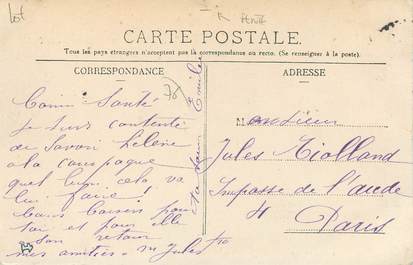 Lot
CARTE POSTALE
Tous les pays étrangers n'acceptent pas la correspondance au recto. (Se renseigner à la poste).
CORRESPONDANCE
ADRESSE
Santé
je suis contente
de savoir hélène
a la campagne
quel cela va
lui faire !
bons baisers pour
toi et pour elle
son retour
mes amitiés Jules
ta sœur Emilie
Monsieur
Jules Tiolland
Impasse de l'aude
4 Paris